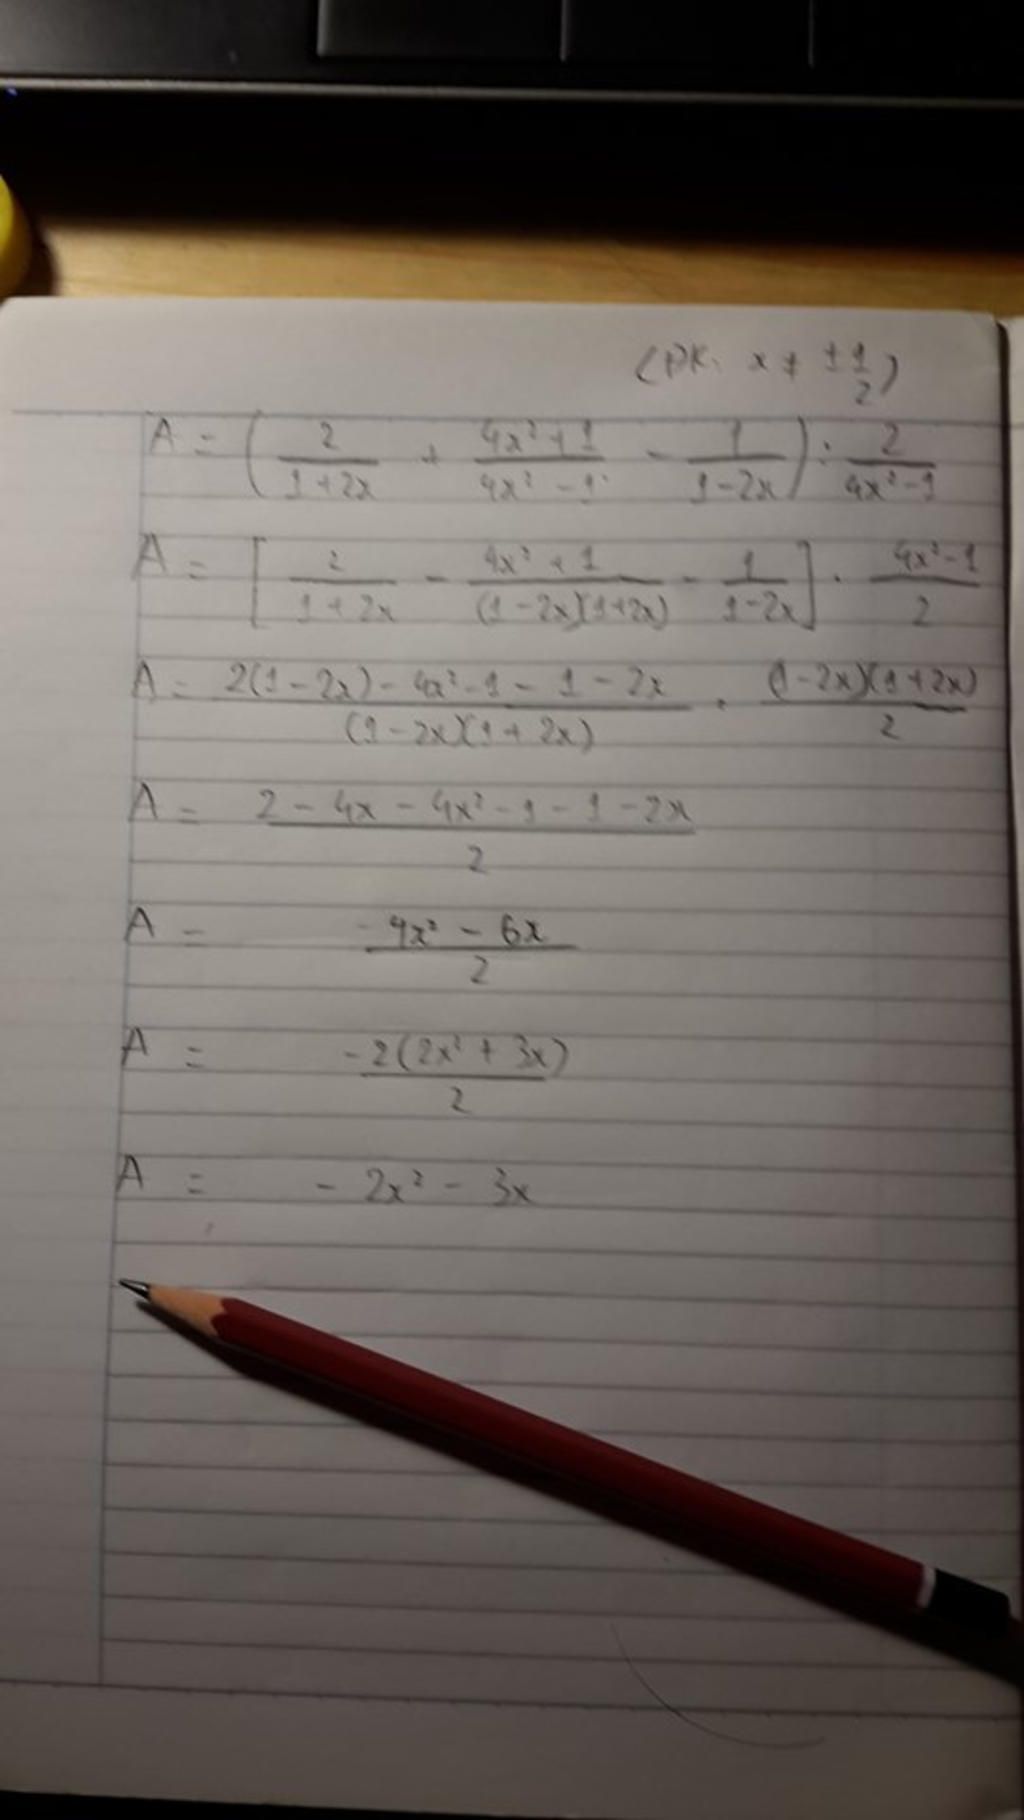 (ĐK: x ≠ ± 1/2)
A = (2/(1+2x) + (4x²+1)/(4x²-1) - 1/(1-2x)) : 2/(4x²-1)
A = [2/(1+2x) - (4x²+1)/((1-2x)(1+2x)) - 1/(1-2x)] . (4x²-1)/2
A = (2(1-2x) - 4x² - 1 - 1 - 2x)/((1-2x)(1+2x)) . ((1-2x)(1+2x))/2
A = (2 - 4x - 4x² - 1 - 1 - 2x)/2
A = (-4x² - 6x)/2
A = (-2(2x² + 3x))/2
A = - 2x² - 3x